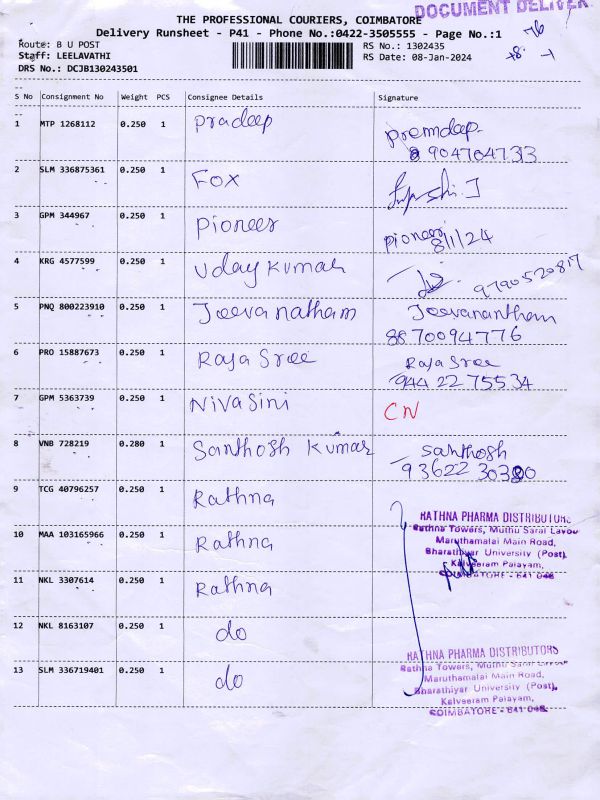 DOCUMENT DELIVER
THE PROFESSIONAL COURIERS, COIMBATORE
Delivery Runsheet - P41 - Phone No.:0422-3505555 - Page No.:1
Route: B U POST
RS No.: 1302435
Staff: LEELAVATHI
RS Date: 08-Jan-2024
DRS No.: DCJB130243501
S No Consignment No Weight PCS Consignee Details Signature
1 MTP 1268112 0.250 1 Pradeep Premdeep
904704733
2 SLM 336875361 0.250 1 Fox
3 GPM 344967 0.250 1 Pioneer Pioneer
8/1/24
4 KRG 4577599 0.250 1 Uday Kumar 9790520817
5 PNQ 800223910 0.250 1 Jeevanatham Jeevanantham
8870094776
6 PRO 15887673 0.250 1 Raja Sree Raja Sree
9442275534
7 GPM 5363739 0.250 1 Nivasini CN
8 VNB 728219 0.280 1 Santhosh Kumar Santhosh
9 TCG 40796257 0.250 1 Rathna
10 MAA 103165966 0.250 1 Rathna
11 NKL 3307614 0.250 1 Rathna
12 NKL 8163107 0.250 1 do
13 SLM 336719401 0.250 1 do
RATHNA PHARMA DISTRIBUTORS
Rathna Towers, Muthu Sarai Layou
Maruthamalai Main Road,
Bharathiyar University (Post),
Kalveeram Palayam,
COIMBATORE - 641 046
RATHNA PHARMA DISTRIBUTORS
Rathna Towers, Muthu Sarai
Maruthamalai Main Road,
Bharathiyar University (Post),
Kalveeram Palayam,
COIMBATORE - 641 046